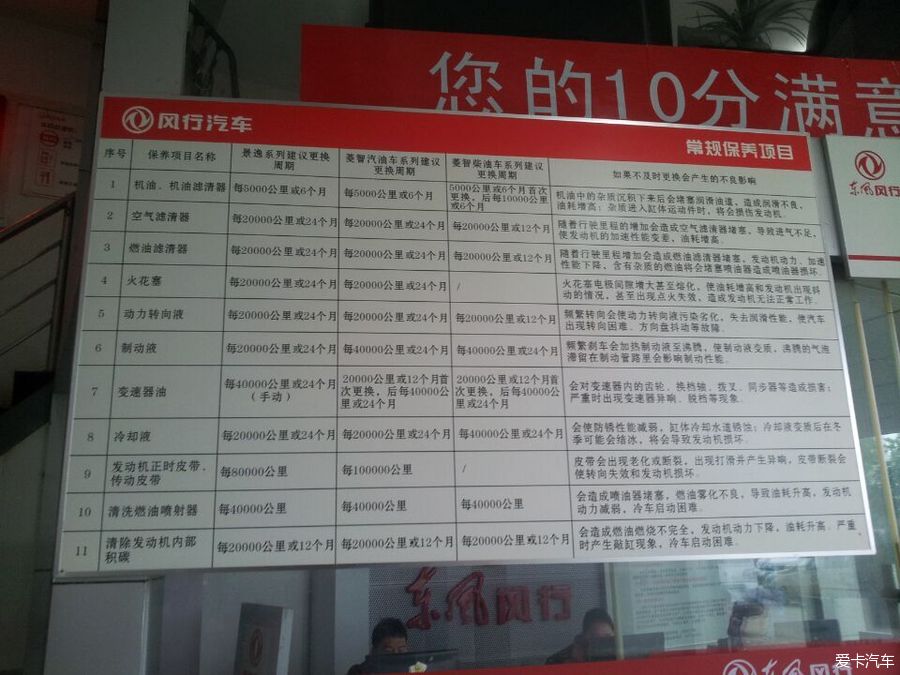 您的10分满意
风行汽车
常规保养项目
东风风行
序号 保养项目名称 景逸系列建议更换周期 菱智汽油车系列建议更换周期 菱智柴油车系列建议更换周期 如果不及时更换会产生的不良影响
1 机油、机油滤清器 每5000公里或6个月 每5000公里或6个月 5000公里或6个月首次更换，后每10000公里或6个月 机油中的杂质沉积下来后会堵塞润滑油道，造成润滑不良，油耗增高；杂质进入缸体运动件时，将会损伤发动机。
2 空气滤清器 每20000公里或24个月 每20000公里或24个月 每20000公里或12个月 随着行驶里程的增加会造成空气滤清器堵塞，导致进气不足，使发动机的加速性能变差，油耗增高。
3 燃油滤清器 每20000公里或24个月 每20000公里或24个月 每20000公里或12个月 随着行驶里程增加会造成燃油滤清器堵塞，发动机动力、加速性能下降，含有杂质的燃油将会堵塞喷油器造成喷油器损坏。
4 火花塞 每20000公里或24个月 每20000公里或24个月 / 火花塞电极间隙增大甚至熔化，使油耗增高和发动机出现抖动的情况，甚至出现点火失效，造成发动机无法正常工作。
5 动力转向液 每20000公里或24个月 每20000公里或24个月 每20000公里或12个月 频繁转向会使动力转向液污染劣化，失去润滑性能，使汽车出现转向困难、方向盘抖动等故障。
6 制动液 每20000公里或24个月 每40000公里或24个月 每40000公里或24个月 频繁刹车会加热制动液至沸腾，使制动液变质，沸腾的气泡滞留在制动管路里会影响制动性能。
7 变速器油 每40000公里或24个月（手动） 20000公里或12个月首次更换，后每40000公里或24个月 20000公里或12个月首次更换，后每40000公里或24个月 会对变速器内的齿轮、换档轴、拨叉、同步器等造成损害；严重时出现变速器异响、脱档等现象。
8 冷却液 每20000公里或24个月 每20000公里或24个月 每40000公里或24个月 会使防锈性能减弱，缸体冷却水道锈蚀；冷却液变质后在冬季可能会结冰，将会导致发动机损坏。
9 发动机正时皮带、传动皮带 每80000公里 每100000公里 / 皮带会出现老化或断裂，出现打滑并产生异响，皮带断裂会使转向失效和发动机损坏。
10 清洗燃油喷射器 每40000公里 每40000公里 每40000公里 会造成喷油器堵塞，燃油雾化不良，导致油耗升高，发动机动力减弱，冷车启动困难。
11 清除发动机内部积碳 每20000公里或12个月 每20000公里或12个月 每20000公里或12个月 会造成燃油燃烧不完全，发动机动力下降，油耗升高。严重时产生敲缸现象，冷车启动困难。
东风风行
东风风行
爱卡汽车